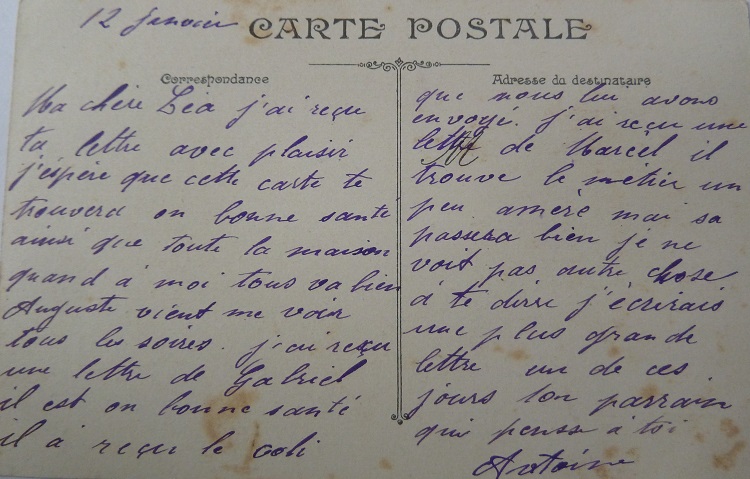 12 janvier
CARTE POSTALE
Correspondance
Ma chère Léa j'ai reçu
ta lettre avec plaisir
j'éspére que cette carte te
trouvera en bonne santé
ainsi que toute la maison
quand à moi tous va bien
Auguste vient me voir
tous les soires. j'ai reçu
une lettre de Gabriel
il est en bonne santé
il à reçu le coli
Adresse du destinataire
que nous lui avons
envoyé. j'ai reçu une
lettre de Marcel il
trouve le métier un
peu amère mai sa
passera bien je ne
voit pas autre chose
à te dirre j'écrirais
une plus grande
lettre un de ces
jours ton parrain
qui pense à toi
Antoine